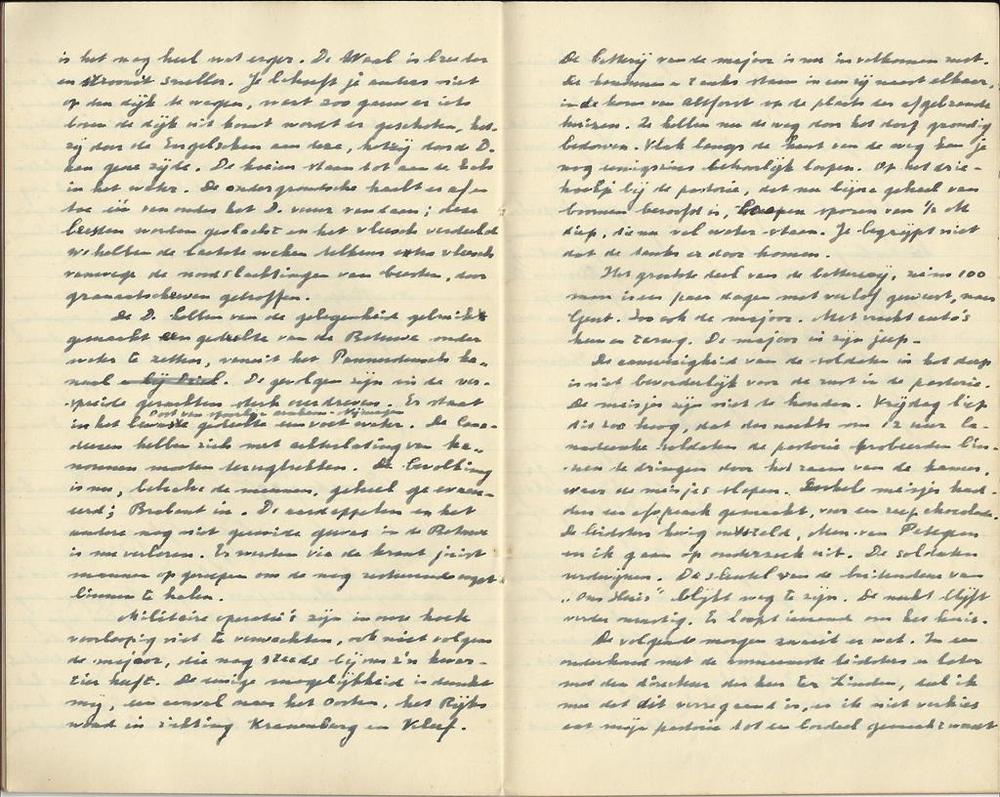 is het nog heel wat erger. De Waal is breeder
en stroomt sneller. Je behoeft je anders niet
op den dijk te wagen, want zoo gauw er iets
boven de dijk uit komt wordt er geschoten, het-
zij door de Engelschen aan deze, hetzij door de D.
aan gene zijde. De koeien staan tot aan de nek
in het water. De ondergrondsche haalt er af en
toe één van onder het D. vuur vandaan; deze
beesten worden geslacht en het vleesch verdeeld
we hebben de laatste weken telkens extra vleesch
vanwege de noodslachtingen van beesten, door
granaatscherven getroffen.
De D. hebben van de gelegenheid gebruik
gemaakt een gedeelte van de Betuwe onder
water te zetten, vanuit het Pannerdensch ka-
naal en bij Driel. De gevolgen zijn in de ver-
spreide geruchten sterk overdreven. Er staat
oost van spoorlijn Arnhem-Nijmegen
in het gedeelte een voet water. De Cana-
deezen hebben zich met achterlating van ka-
nonnen moeten terugtrekken. De bevolking
is nu, behalve de mannen, geheel geevacu-
eerd; Brabant in. De aardappelen en het
andere nog niet geruide gewas in de Betuwe
is nu verloren. Er werden via de krant juist
mannen opgeroepen om de nog resteerende oogst
binnen te halen.
Militaire operatie's zijn in onze hoek
voorloopig niet te verwachten, ook niet volgens
de majoor, die nog steeds bij ons z'n kwar-
tier heeft. De eenige mogelijkheid is dunkt
mij, een aanval naar het Oosten, het Rijks
woud in richting Kranenburg en Kleef.
De batterij van de majoor is nu in volkomen rust.
De kanonnen en tanks staan in een rij naast elkaar,
in de kom van Altforst op de plaats der afgebrande
huizen. Ze hebben nu de weg door het dorp grondig
bedorven. Vlak langs de kant van de weg kan je
nog eenigszins behoorlijk loopen. Op het drie-
hoekje bij de pastorie, dat nu bijna geheel van
boomen beroofd is, loopen sporen van ½ M
diep, die nu vol water staan. Je begrijpt niet
dat de tanks er door komen.
Het grootste deel van de batterij, zeker 100
man is een paar dagen met verlof geweest, naar
Gent. Zoo ook de majoor. Met vrachtauto's
heen en terug. De majoor in zijn jeep.
De aanwezigheid van de soldaten in het dorp
is niet bevorderlijk voor de rust in de pastorie.
De meisjes zijn niet te houden. Vrijdag liep
dit zoo hoog, dat des nachts om 12 uur Ca-
nadeesche soldaten de pastorie probeerden bin-
nen te dringen door het raam van de kamer,
waar de meisjes slapen. Enkele meisjes had-
den een afspraak gemaakt, voor een reep chocolade.
De leidsters hevig ontsteld, Men. van Petegem
en ik gaan op onderzoek uit. De soldaten
verdwijnen. De sleutel van de buitendeur van
„Ons Huis" blijkt weg te zijn. De nacht blijft
verder onrustig. Er loopt iemand om het huis.
De volgende morgen zwaait er wat. In een
onderhoud met de leidsters en later
met den directeur den heer Ter Linden, deel ik
mee dat dit verregaand is, en ik niet verkies
dat mijn pastorie tot een bordeel gemaakt wordt